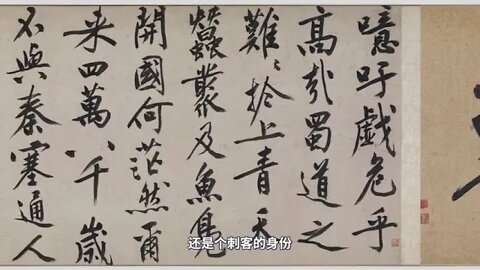 噫吁戲危乎
高哉蜀道之
難〻於上青天
蠶叢及魚鳧
開國何茫然爾
來四萬八千歲
不與秦塞通人
还是个刺客的身份